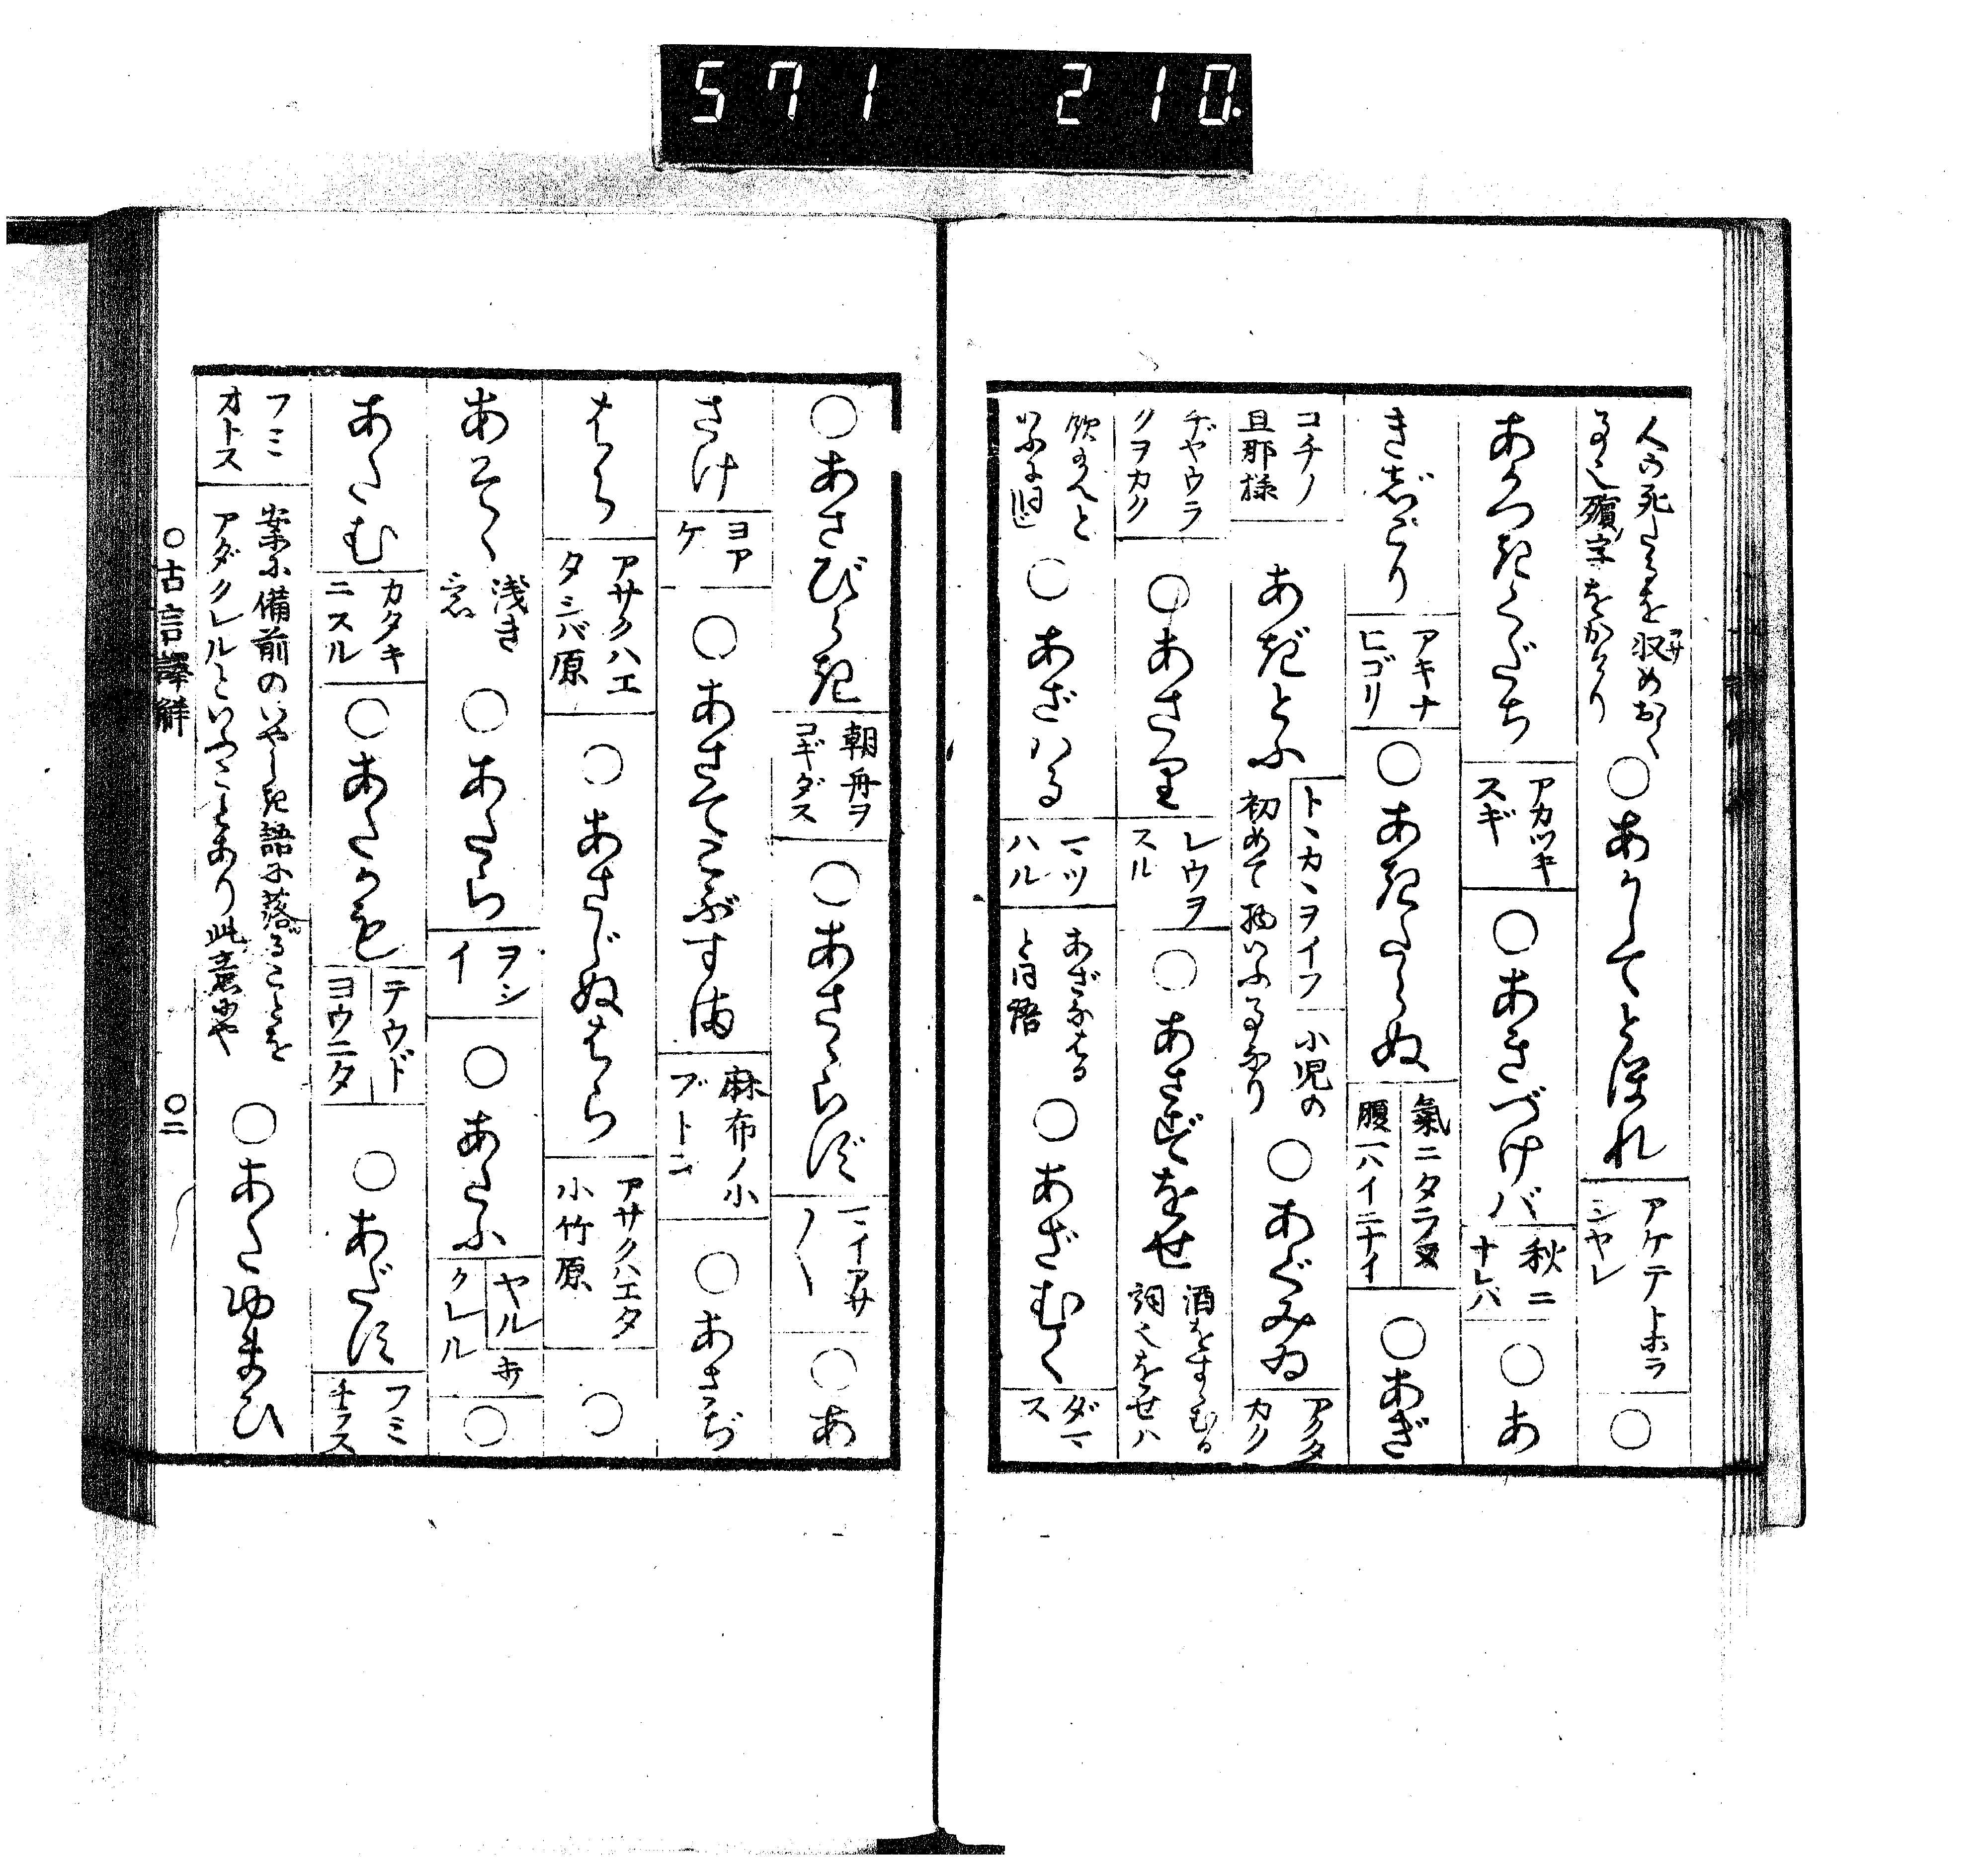 571 210.
人の死たるを収めおく
る也殯字をかけり
○あけてとほれ
アケテトホラ
シヤレ
○
あかつきくだち
アカツキ
スギ
○あきづけバ
秋ニ
ナレハ
○あ
きぢこり
アキナ
ヒゴリ
○あきたらぬ
氣ニタラヌ
腹一ハイニナイ
○あぎ
コチノ
旦那様
あぎとふ
トヽカヽヲイフ
小児の
初めて物いふるなり
○あぐみゐ
アグタ
カク
ヂヤウラ
クヲカク
○あさり
レウヲ
スル
○あさずをせ
酒をすゝむる
詞也をせハ
飲のんと
いふに同じ
○あざハる
マツ
ハル
あざなはる
と同語
○あざむく
ダマ
ス
○あさびらき
朝舟ヲ
コギダス
○あさらず
マイアサ
○あ
さけ
ヨア
ケ
○あさてこぶすま
麻布ノ小
ブトン
○あさぢ
はら
アサクハエ
タシバ原
○あさじぬはら
アサクハエタ
小竹原
○
あそゝ
浅き
意
○あたら
ヲシ
イ
○あたふ
ヤル
クレル
○
あたむ
カタキ
ニスル
○あたかも
テウド
ヨウニタ
○あだす
フミ
チラス
フミ
オトス
案に備前のいやしき語に落ることを
アダクレルといふことあり此意にや
○あたゆまひ
○古言譯解
○二